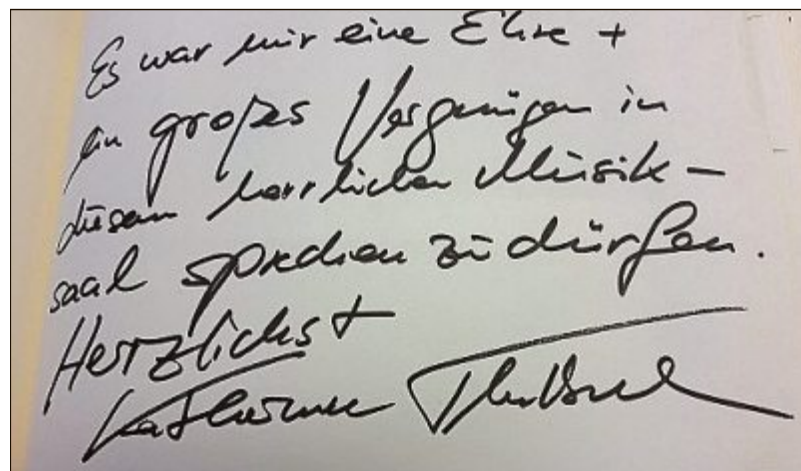 Es war mir eine Ehre +
ein großes Vergnügen in
diesem herrlichen Musik-
saal sprechen zu dürfen.
Herzlichst
Katharina Thalbach